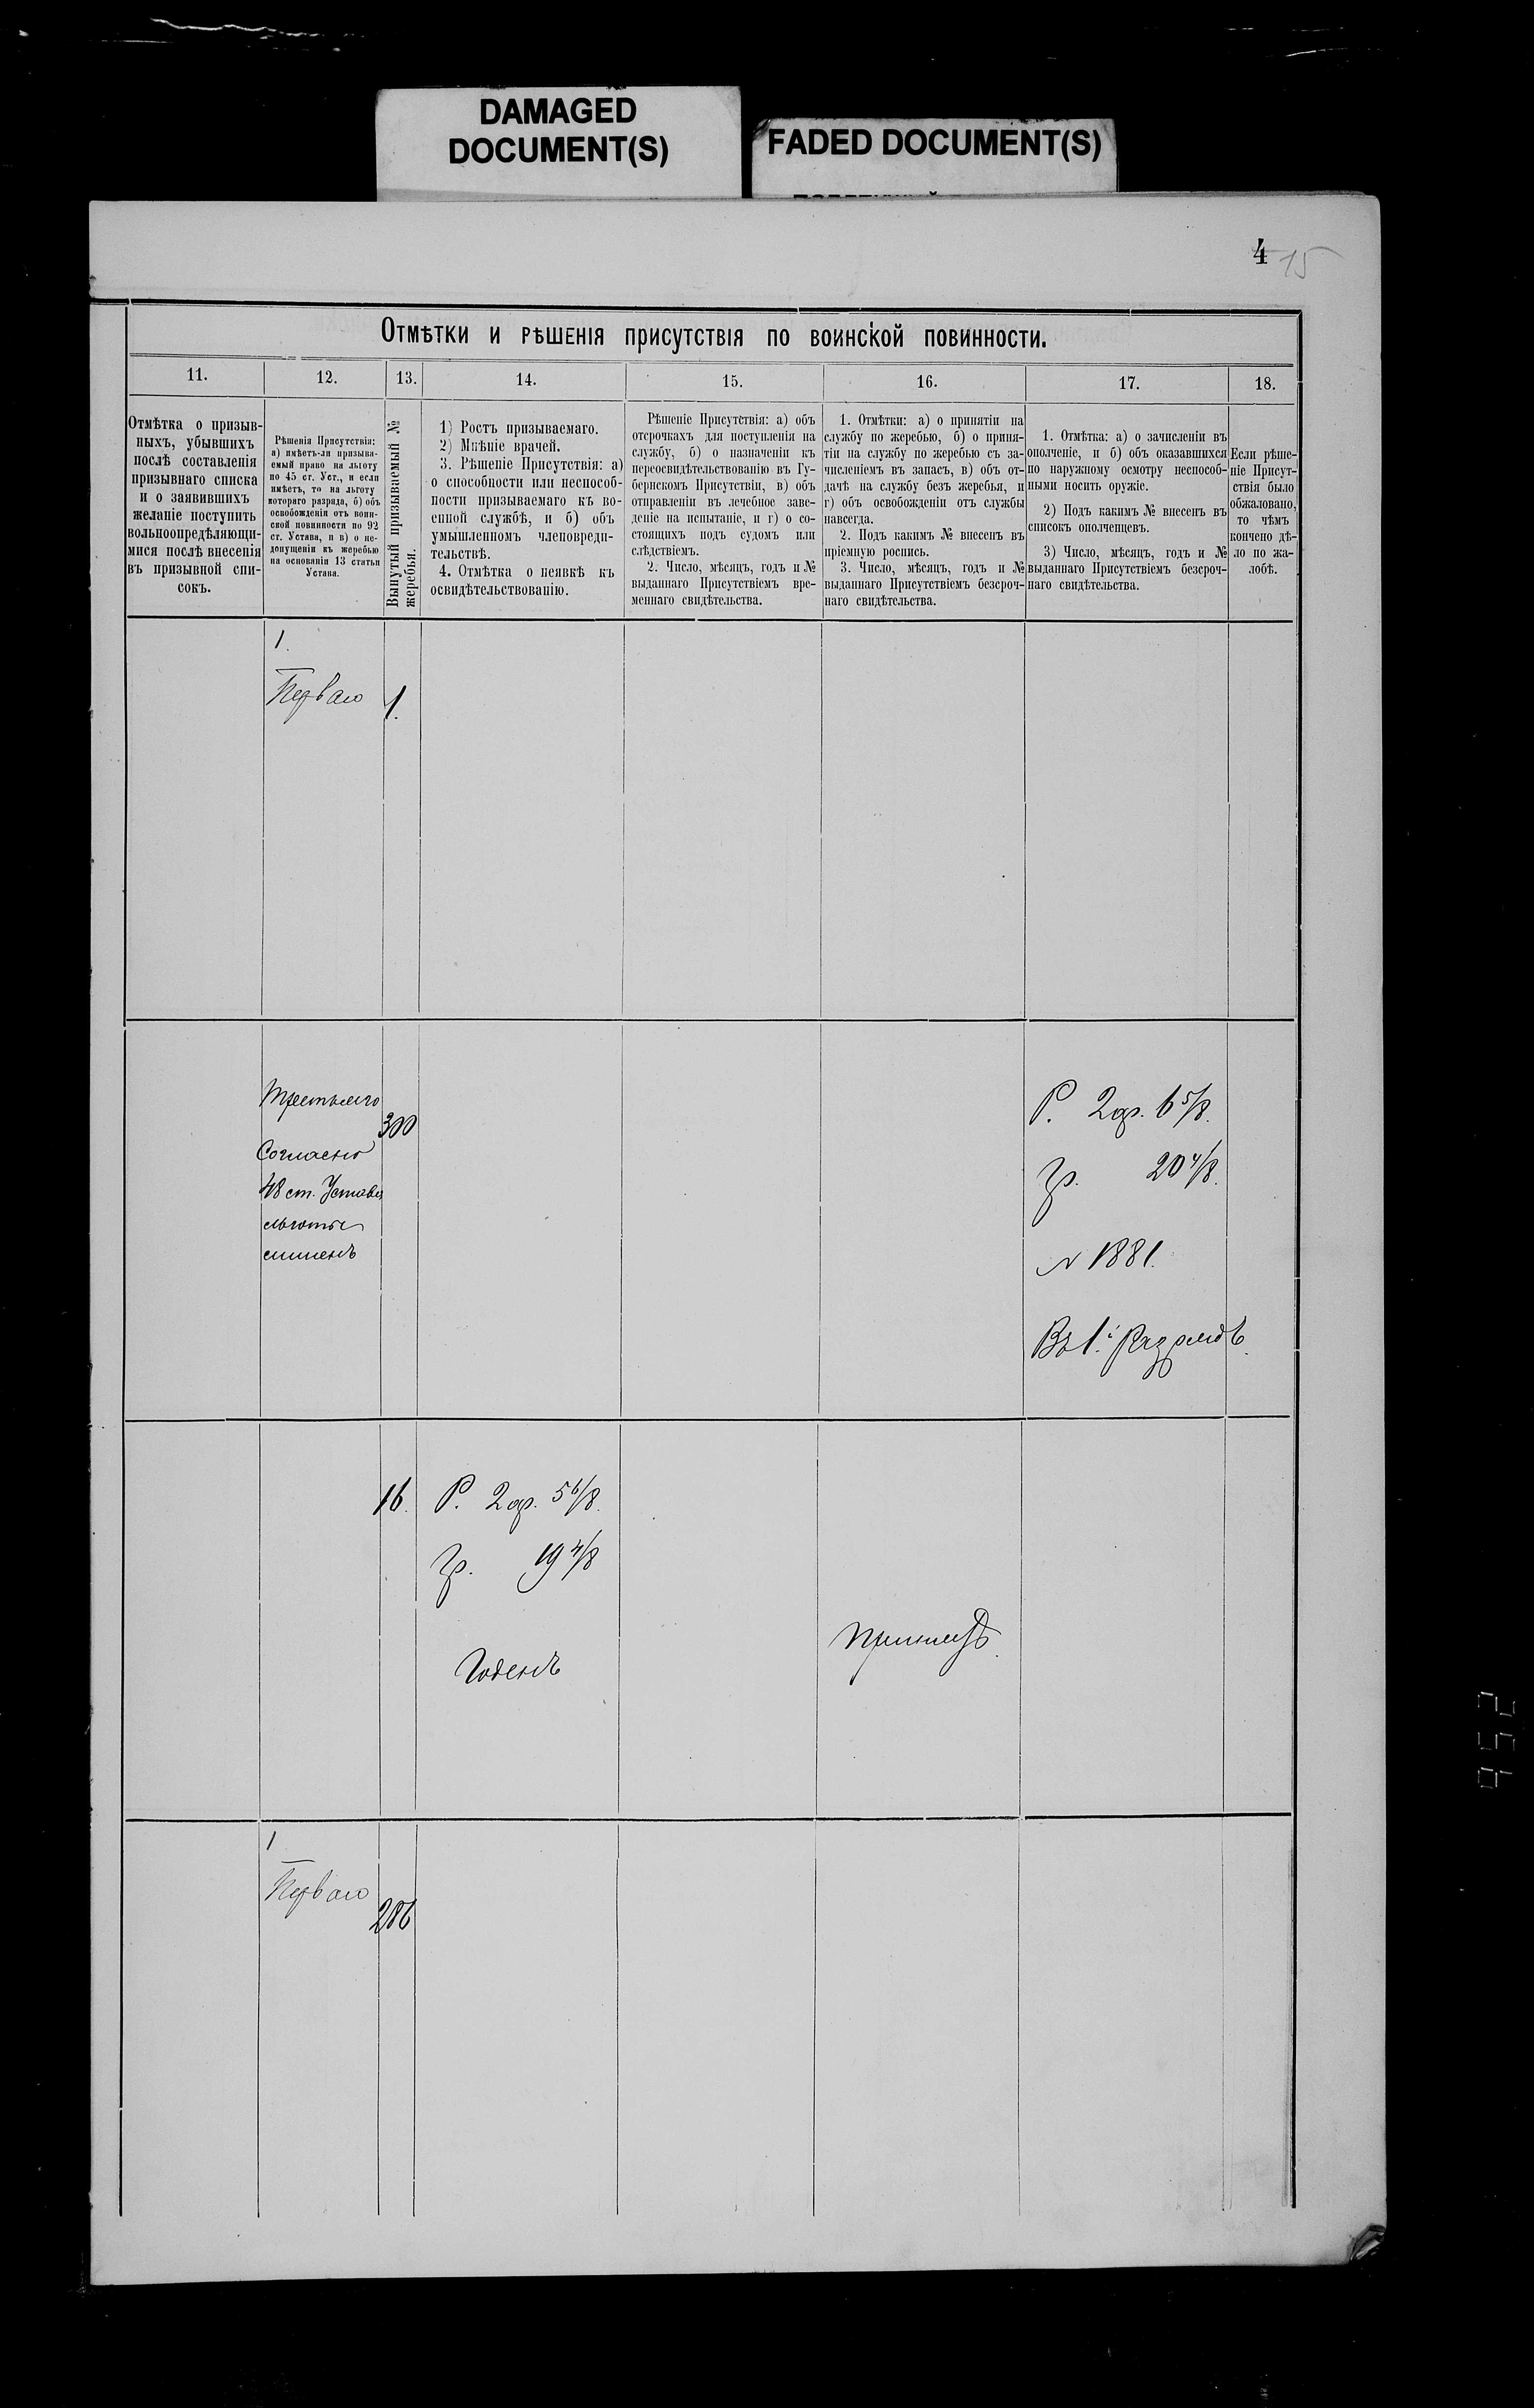 DAMAGED
DOCUMENT(S)
FADED DOCUMENT(S)
4 15
Отмѣтки и рѣшенія присутствія по воинской повинности.
11.
12.
13.
14.
15.
16.
17.
18.
Отмѣтка о призыв-
ныхъ, убывшихъ
послѣ составленія
призывнаго списка
и о заявившихъ
желаніе поступить
вольноопредѣляющи-
мися послѣ внесенія
въ призывной спи-
сокъ.
Рѣшенія Присутствія:
а) имѣетъ-ли призыва-
емый право на льготу
по 45 ст. Уст., и если
имѣетъ, то на льготу
котораго разряда, б) объ
освобожденіи отъ воин-
ской повинности по 92
ст. Устава, и в) о не-
допущеніи къ жеребью
на основаніи 13 статьи
Устава.
Вынутый призываемый №
жеребья.
1) Ростъ призываемаго.
2) Мнѣніе врачей.
3. Рѣшеніе Присутствія: а)
о способности или неспособ-
ности призываемаго къ во-
енной службѣ, и б) объ
умышленномъ членовреди-
тельствѣ.
4. Отмѣтка о неявкѣ къ
освидѣтельствованію.
Рѣшеніе Присутствія: а) объ
отсрочкахъ для поступленія на
службу, б) о назначеніи къ
переосвидѣтельствованію въ Гу-
бернскомъ Присутствіи, в) объ
отправленіи въ лечебное заве-
деніе на испытаніе, и г) о со-
стоящихъ подъ судомъ или
слѣдствіемъ.
2. Число, мѣсяцъ, годъ и №
выданнаго Присутствіемъ вре-
меннаго свидѣтельства.
1. Отмѣтки: а) о принятіи на
службу по жеребью, б) о приня-
тіи на службу по жеребью съ за-
численіемъ въ запасъ, в) объ от-
дачѣ на службу безъ жеребья, и
г) объ освобожденіи отъ службы
навсегда.
2. Подъ какимъ № внесенъ въ
пріемную роспись.
3. Число, мѣсяцъ, годъ и №
выданнаго Присутствіемъ безсроч-
наго свидѣтельства.
1. Отмѣтка: а) о зачисленіи въ
ополченіе, и б) объ оказавшихся
по наружному осмотру неспособ-
ными носить оружіе.
2) Подъ какимъ № внесенъ въ
списокъ ополченцевъ.
3) Число, мѣсяцъ, годъ и №
выданнаго Присутствіемъ безсроч-
наго свидѣтельства.
Если рѣше-
ніе Присут-
ствія было
обжаловано,
то чѣмъ
кончено дѣ-
ло по жа-
лобѣ.
1.
Перваго
1.
Третьяго
Согласно
48 ст. Устава
льготы
лишенъ
300
Р. 2 ар. 6 5/8.
Гр. 20 4/8.
№ 1881.
Въ 1й разрядъ.
16.
Р. 2 ар. 5 6/8.
Гр. 19 4/8
Годенъ
Принятъ.
1
Перваго
286
952